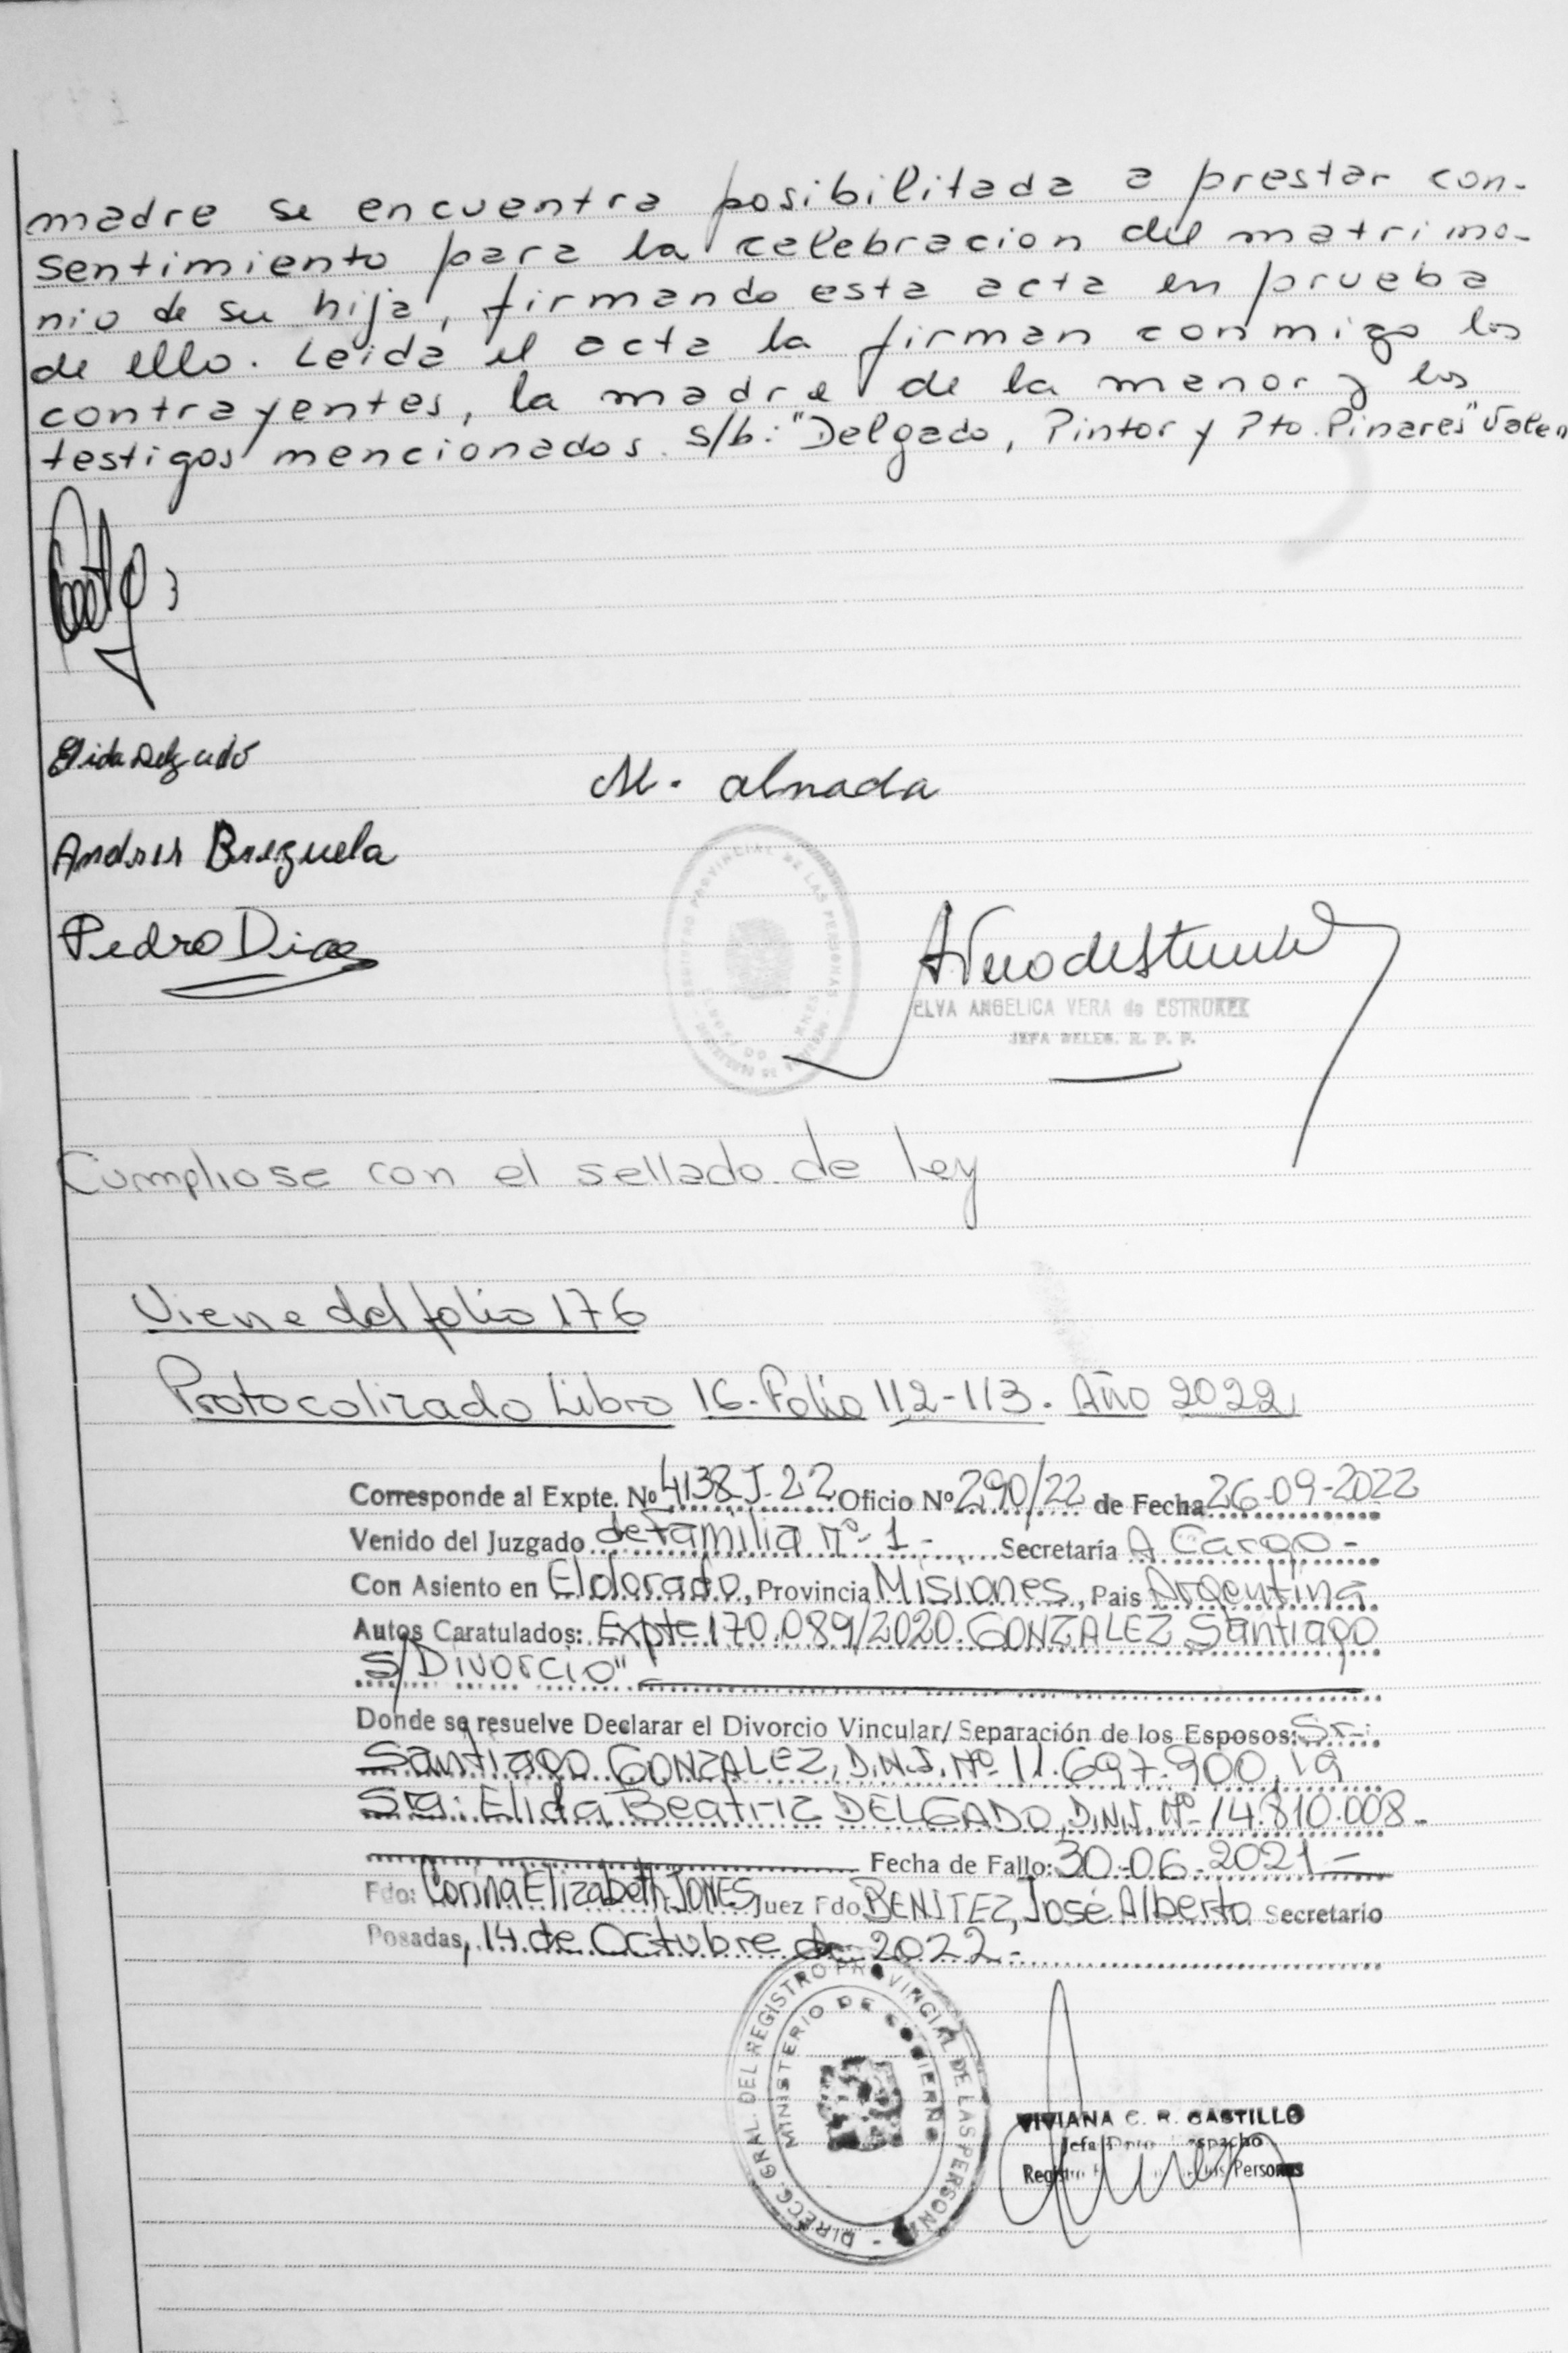 madre se encuentra posibilitada a prestar con-
sentimiento para la celebracion del matrimo-
nio de su hija, firmando esta acta en prueba
de ello. Leida el acta la firman conmigo los
contrayentes, la madre de la menor y los
testigos mencionados. s/b: "Delgado, Pintor y Pto. Pinares" Valen
Elida Delgado
M. almada
Andres Brizuela
Pedro Diaz
REGISTRO PROVINCIAL DE LAS PERSONAS
ELVA ANGELICA VERA de ESTRUKEK
JEFA DELEG. R. P. P.
Cumpliose con el sellado de ley
Viene del folio 176
Protocolizado Libro 16-Folio 112-113. Año 2022
Corresponde al Expte. Nº 4138 J-22 Oficio Nº 290/22 de Fecha 26-09-2022
Venido del Juzgado de Familia nº 1- Secretaría A Cargo-
Con Asiento en Eldorado, Provincia Misiones, Pais Argentina
Autos Caratulados: Expte 170.089/2020. GONZALEZ Santiago
S/Divorcio"
Donde se resuelve Declarar el Divorcio Vincular/ Separación de los Esposos: Sr.:
Santiago GONZALEZ, D.N.I. Nº 11.697.900, y la
Sra: Elida Beatriz DELGADO, D.N.I. Nº 14.810.008-
Fecha de Fallo: 30-06-2021-
Fdo: Corina Elizabeth JONES Juez Fdo BENITEZ, José Alberto Secretario
Posadas, 14 de Octubre de 2022-
DIRECC. GRAL. DEL REGISTRO PROVINCIAL DE LAS PERSONAS -
MINISTERIO DE GOBIERNO
VIVIANA C. R. CASTILLO
Jefa Despacho
Registro Personas